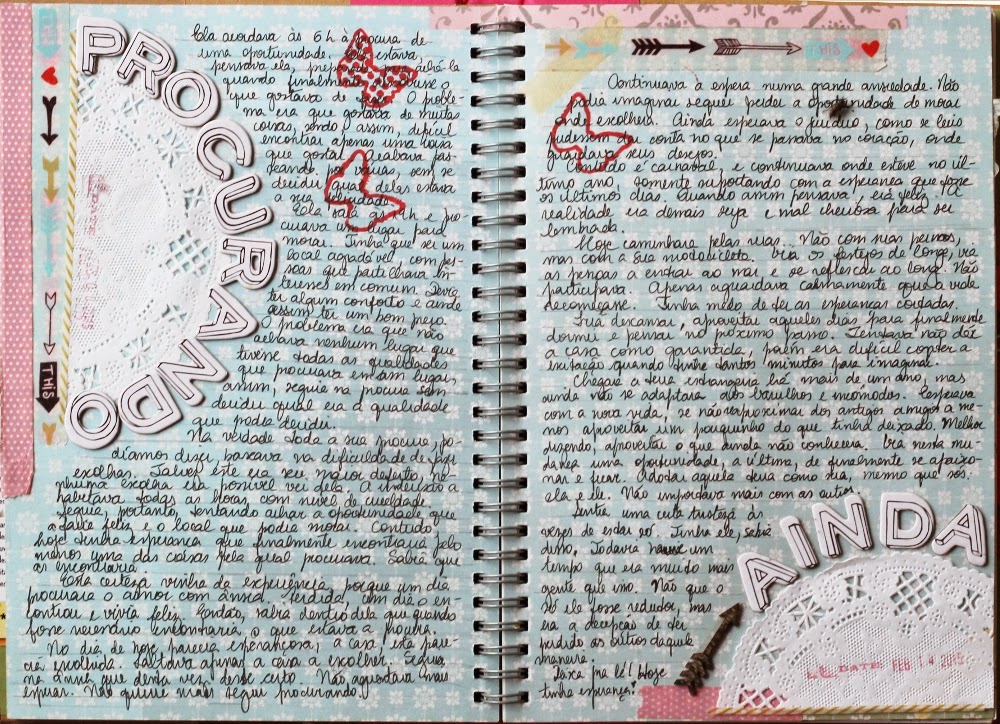 PROCURANDO
Ela acordava às 6h à procura de
uma oportunidade. Ela estava,
pensava ela, preparada achá-la
quando finalmente o
que gostava de fazer. O proble-
ma era que gostava de muitas
coisas, sendo assim, difícil
encontrar apenas uma coisa
que gostar. Acabava pas-
seando por várias, sem se
decidir qual delas estava
a sua felicidade.
Ela saía às 14h e pro-
curava um lugar para
morar. Tinha que ser um
local agradável, com pes-
soas que partilhava in-
teresses em comum. Devia
ter algum conforto e ainda
assim ter um bom preço.
O problema era que não
achava nenhum lugar que
tivesse todas as qualidades
que procurava em um lugar,
assim, seguia na procura sem
decidir qual era a qualidade
que podia decidir.
Na verdade toda a sua procura, po-
díamos dizer, baseava na dificuldade de
escolhas. Talvez este era seu maior defeito, ne-
nhuma escolha era possível vei dela. A indecisão a
habitava todas as horas, com nível de crueldade.
Seguia, portanto, tentando achar a oportunidade que
a faria feliz e o local que podia morar. Contudo,
hoje tinha esperança que finalmente encontraria pelo
menos uma das coisas pela qual procurava. Sabia que
as encontraria.
Esta certeza vinha da experiência, porque um dia
procurara o amor com ânsia. Perdida, um dia o en-
controu e vivia feliz. Então, sabia dentro dela que quando
fosse necessário encontraria o que estava a procura.
No dia de hoje parecia esperançosa, a casa, esta pare-
cia escolhida. Faltava apenas a casa a escolher. Seguia
na ânsia que desta vez desse certo. Não aguentava mais
esperar. Não queria mais seguir procurando.
THIS
THIS
Continuava à espera numa grande ansiedade. Não
podia imaginar sequer perder a oportunidade de morar
onde escolhera. Ainda esperava o prédio, como se eles
pudessem dar conta no que se passava no coração, onde
guardava seus desejos.
Contudo é carnaval, e continuava onde esteve no úl-
timo ano, somente suportando com a esperança que fosse
os últimos dias. Quando assim pensava, era feliz. A
realidade era demais suja e mal cheirosa para ser
lembrada.
Hoje caminhara pelas ruas... Não com suas pernas,
mas com a sua motocicleta. Via os festejos de longe, via
as pessoas a entrar ao mar e se refrescar ao longe. Não
participava. Apenas aguardava calmamente que a vida
recomeçasse. Tinha medo de ter as esperanças cortadas.
Iria descansar, aproveitar aqueles dias para finalmente
dormir e pensar no próximo passo. Tentava não dar
a casa como garantida, porém era difícil conter a
excitação quando tinha tantos minutos para imaginar.
Chegara a terra estrangeira há mais de um ano, mas
ainda não se adaptara aos barulhos e incômodos. Esperava
com a nova vida, se não reaproximar dos antigos amigos a me-
nos aproveitar um pouquinho do que tinha deixado. Melhor
dizendo, aproveitar o que ainda não conhecera. Via nesta mu-
dança uma oportunidade, a última, de finalmente se apaixo-
nar e ficar. Adotar aquela terra como sua, mesmo que sós,
ela e ele. Não importava mais com as outras.
Sentia uma certa tristeza às
vezes de estar só. Tinha ele, sabia
disso. Todavia houve um
tempo que era muito mais
gente que isso. Não que o
só ele fosse redutor, mas
era a decepção de ter
perdido as outras daquela
maneira.
Deixa pra lá! Hoje
tinha esperança!
AINDA
DATE: FEB 14 2015